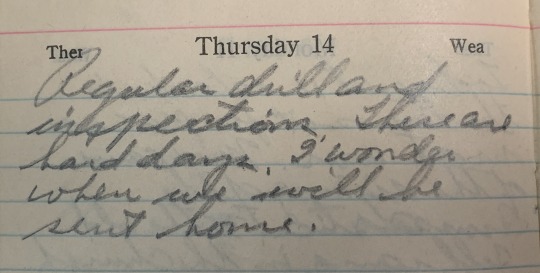 Ther Thursday 14 Wea
Regular drill and
inspection. These are
hard days. I wonder
when we will be
sent home.